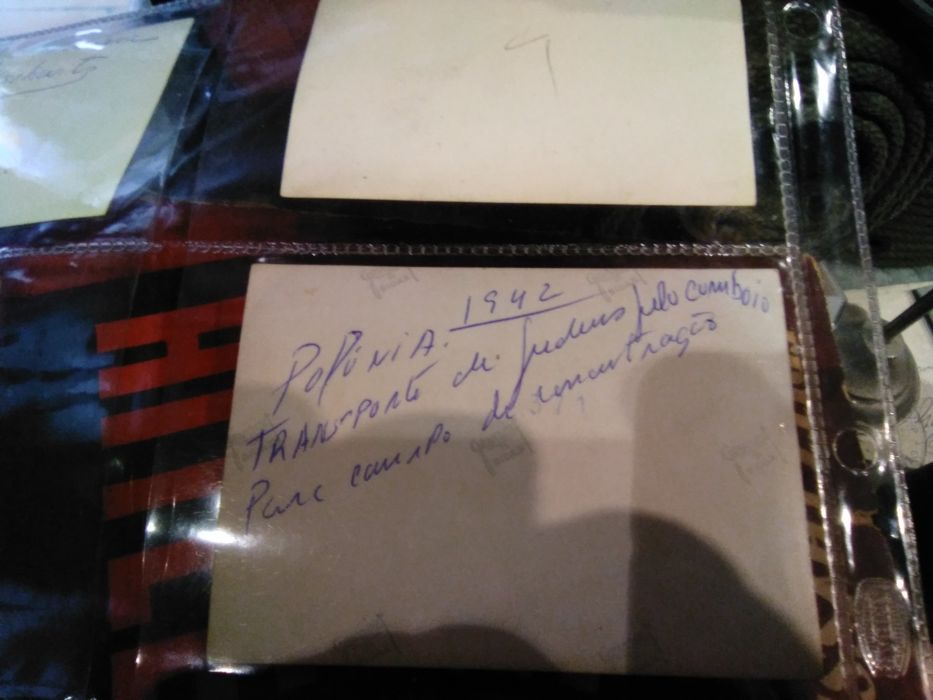 POlÓNiA. 1942
TRANSPORTE de judeus pelo comboio
Para campo de concentração